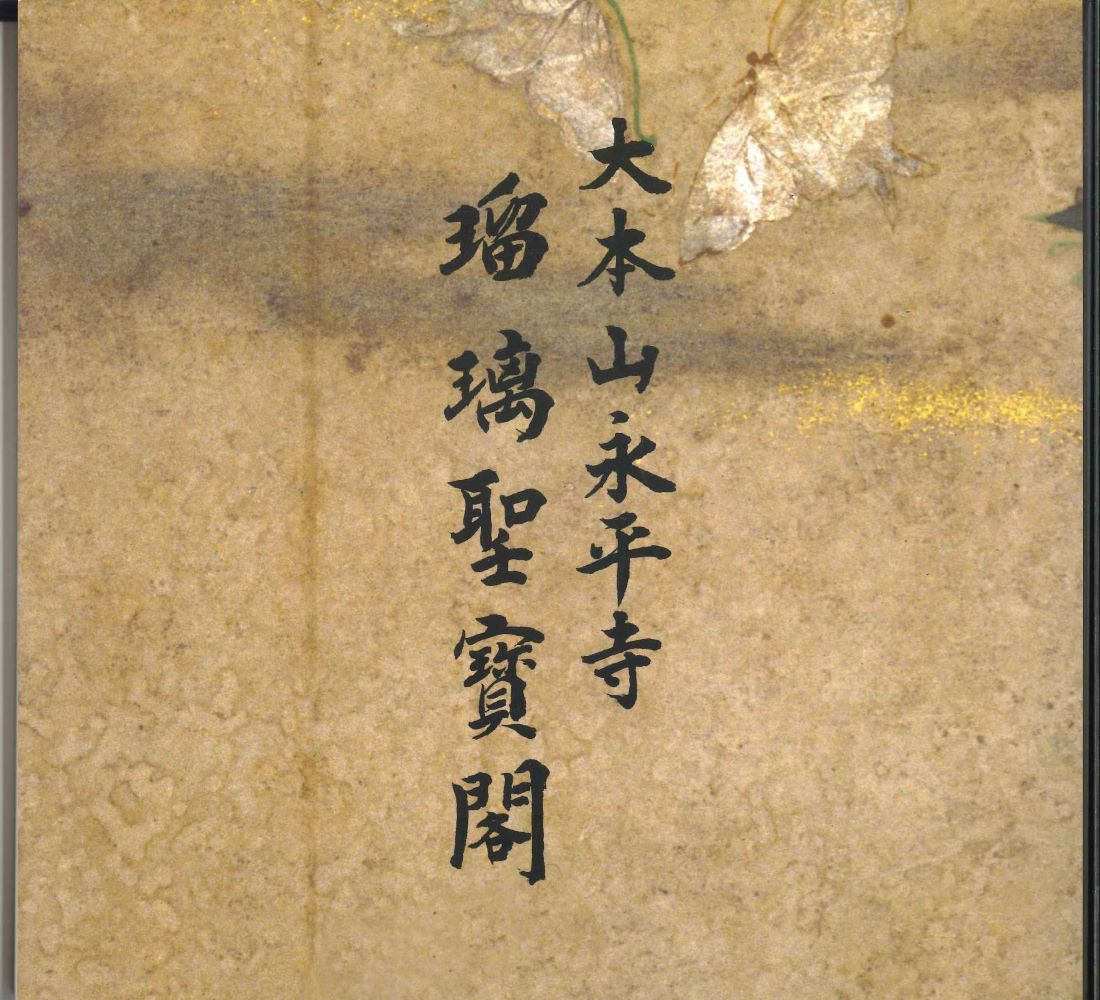 大本山永平寺
瑠璃聖寶閣